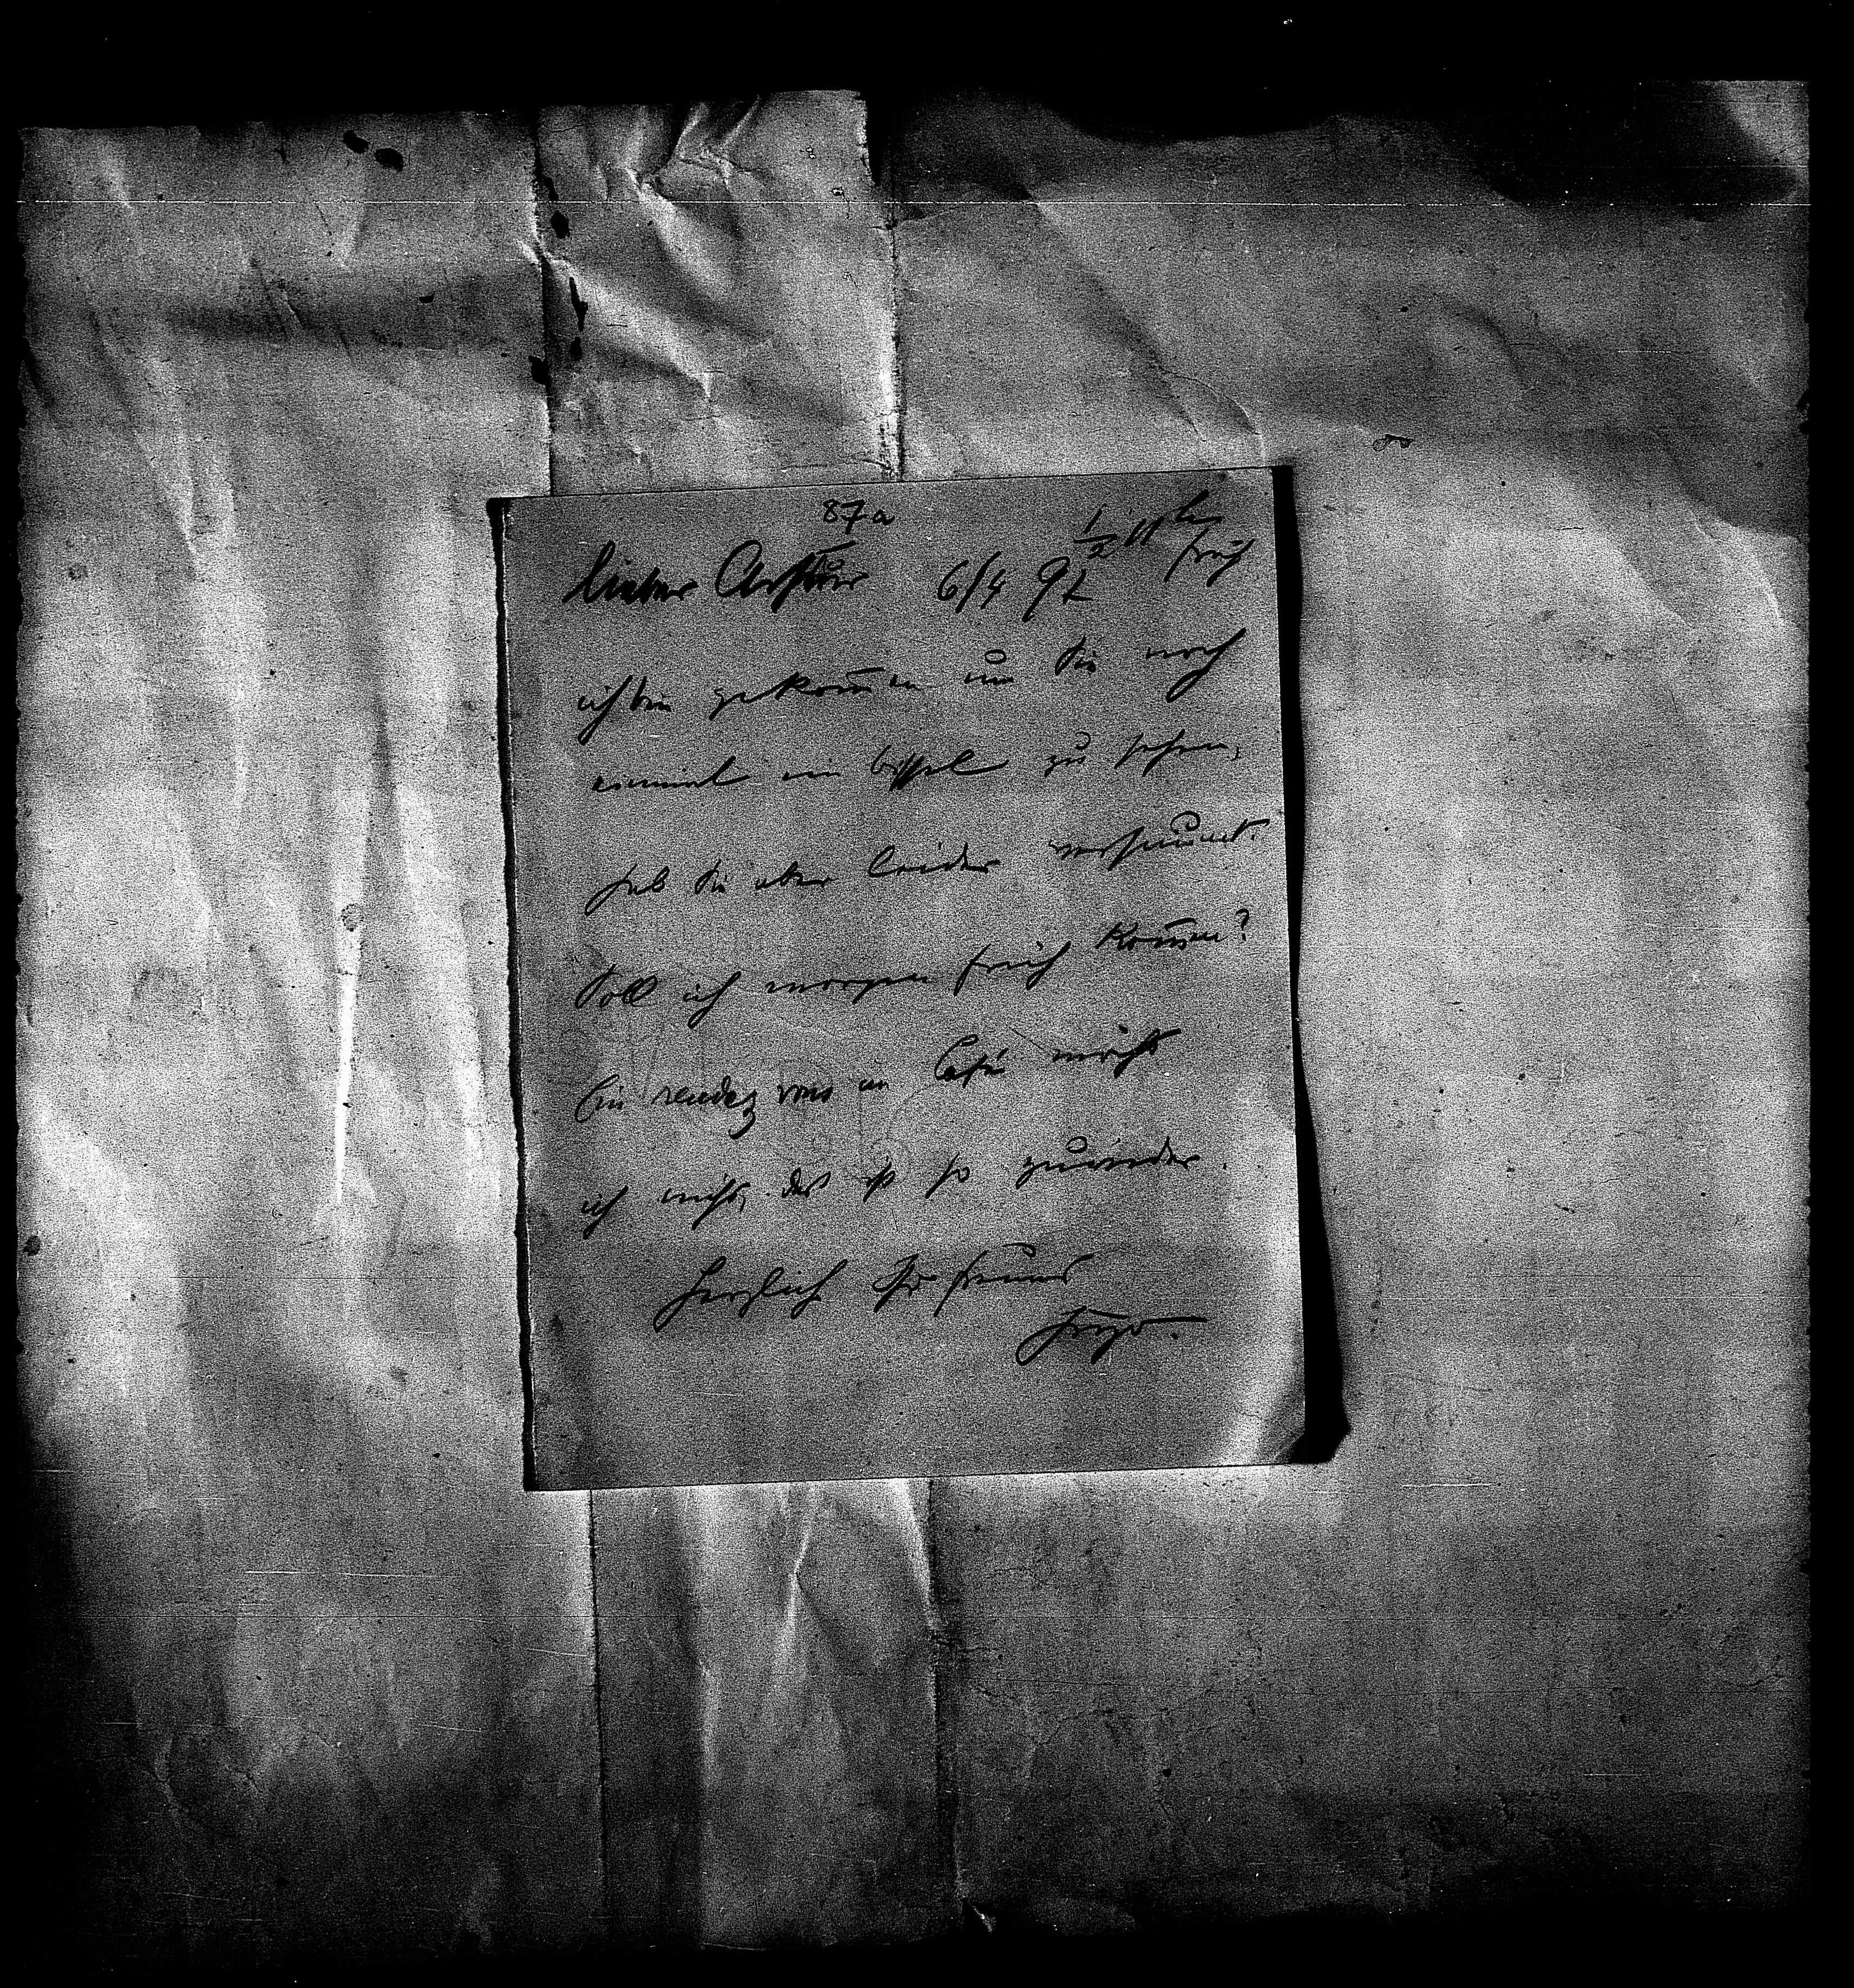 87a
½ 11 h
früh
lieber Arthur 6/4 97
ich bin gekom̅en um Sie noch
einmal ein bissel zu sehen,
hab Sie aber leider versäumt.
Soll ich morgen früh kom̅en?
Ein rendez vous im Café möcht
ich nicht, das ist so zuwieder.
Herzlich Ihr Freund
Hugo.